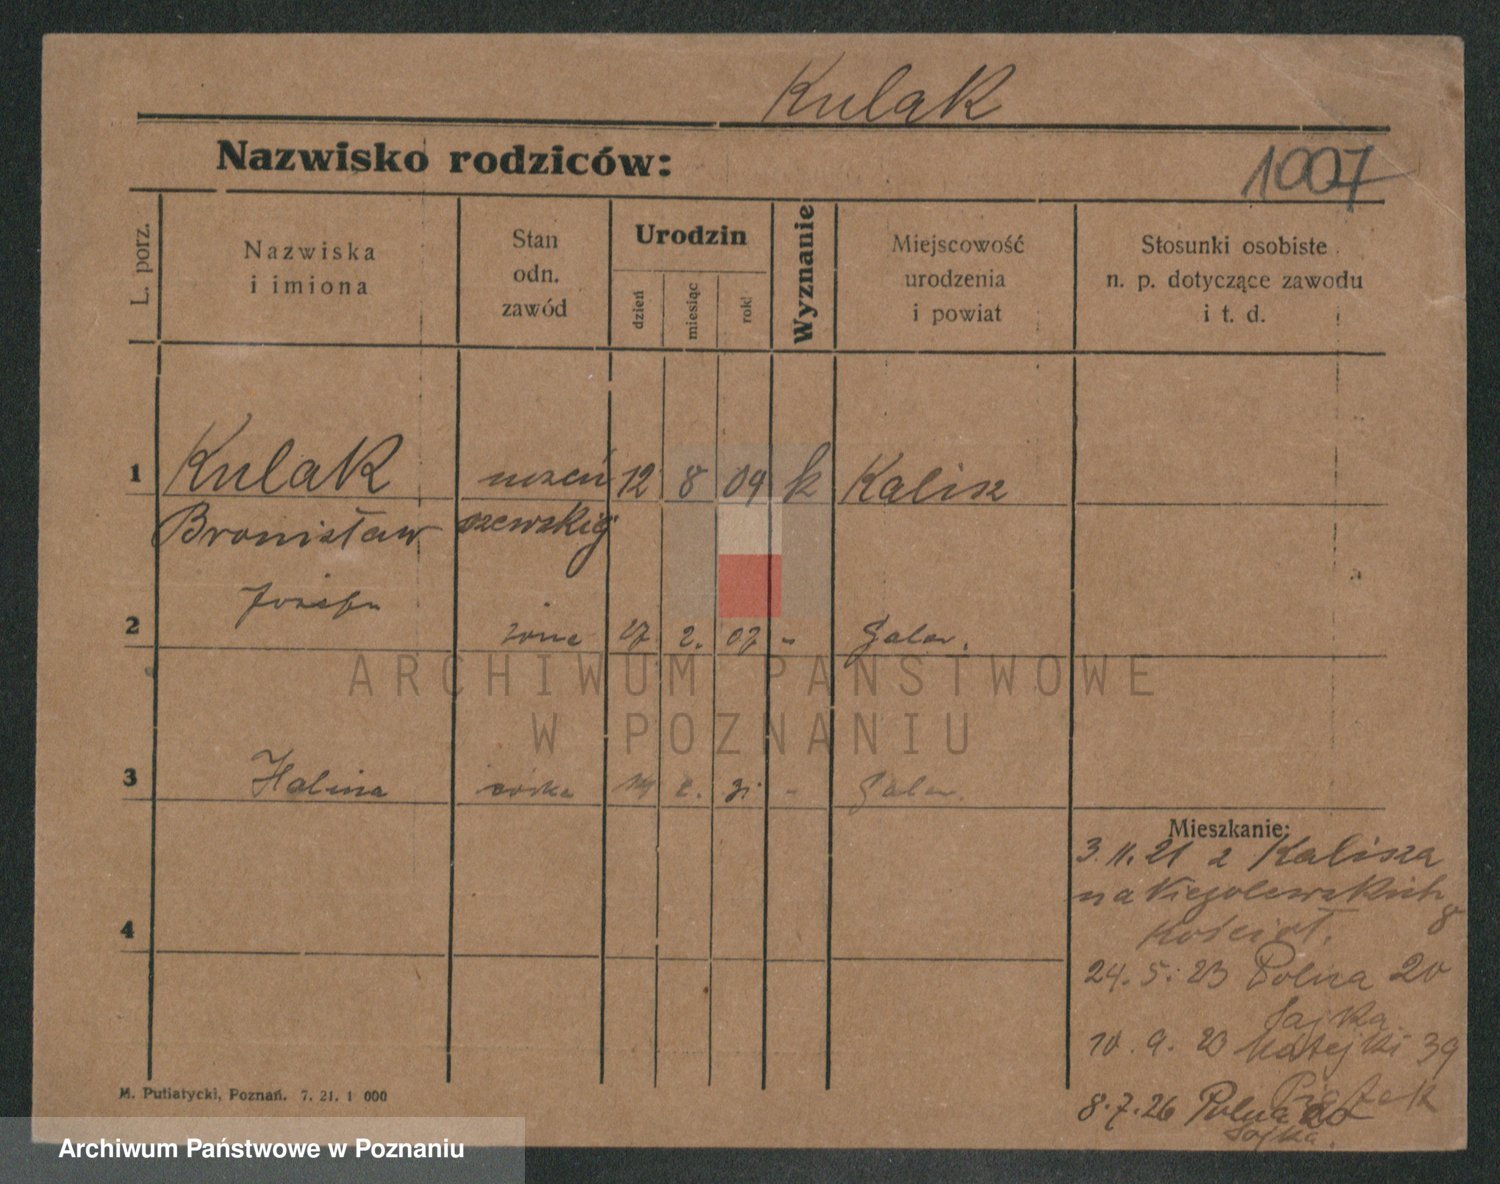 Kulak
Nazwisko rodziców:
1007
L. porz.
Nazwiska
i imiona
Stan
odn.
zawód
Urodzin
dzień
miesiąc
rok
Wyznanie
Miejscowość
urodzenia
i powiat
Stosunki osobiste
n. p. dotyczące zawodu
i t. d.
1 Kulak uczeń 12 8 09 k Kalisz
Bronisław szewskiej
Józefa
2 żona 27. 2. 07 "
ARCHIWUM PAŃSTWOWE
W POZNANIU
3 Halina córka 31 "
Mieszkanie:
3. 11. 21 z Kalisza
na Niegolewskich
8
Kościoł.
4
24. 5. 23 Polna 20
Sajka
10. 9. 23 Matejki 39
Piątek
8. 7. 26 Polna 20
Sajka.
M. Putiatycki, Poznań. 7. 21. 1 000
Archiwum Państwowe w Poznaniu